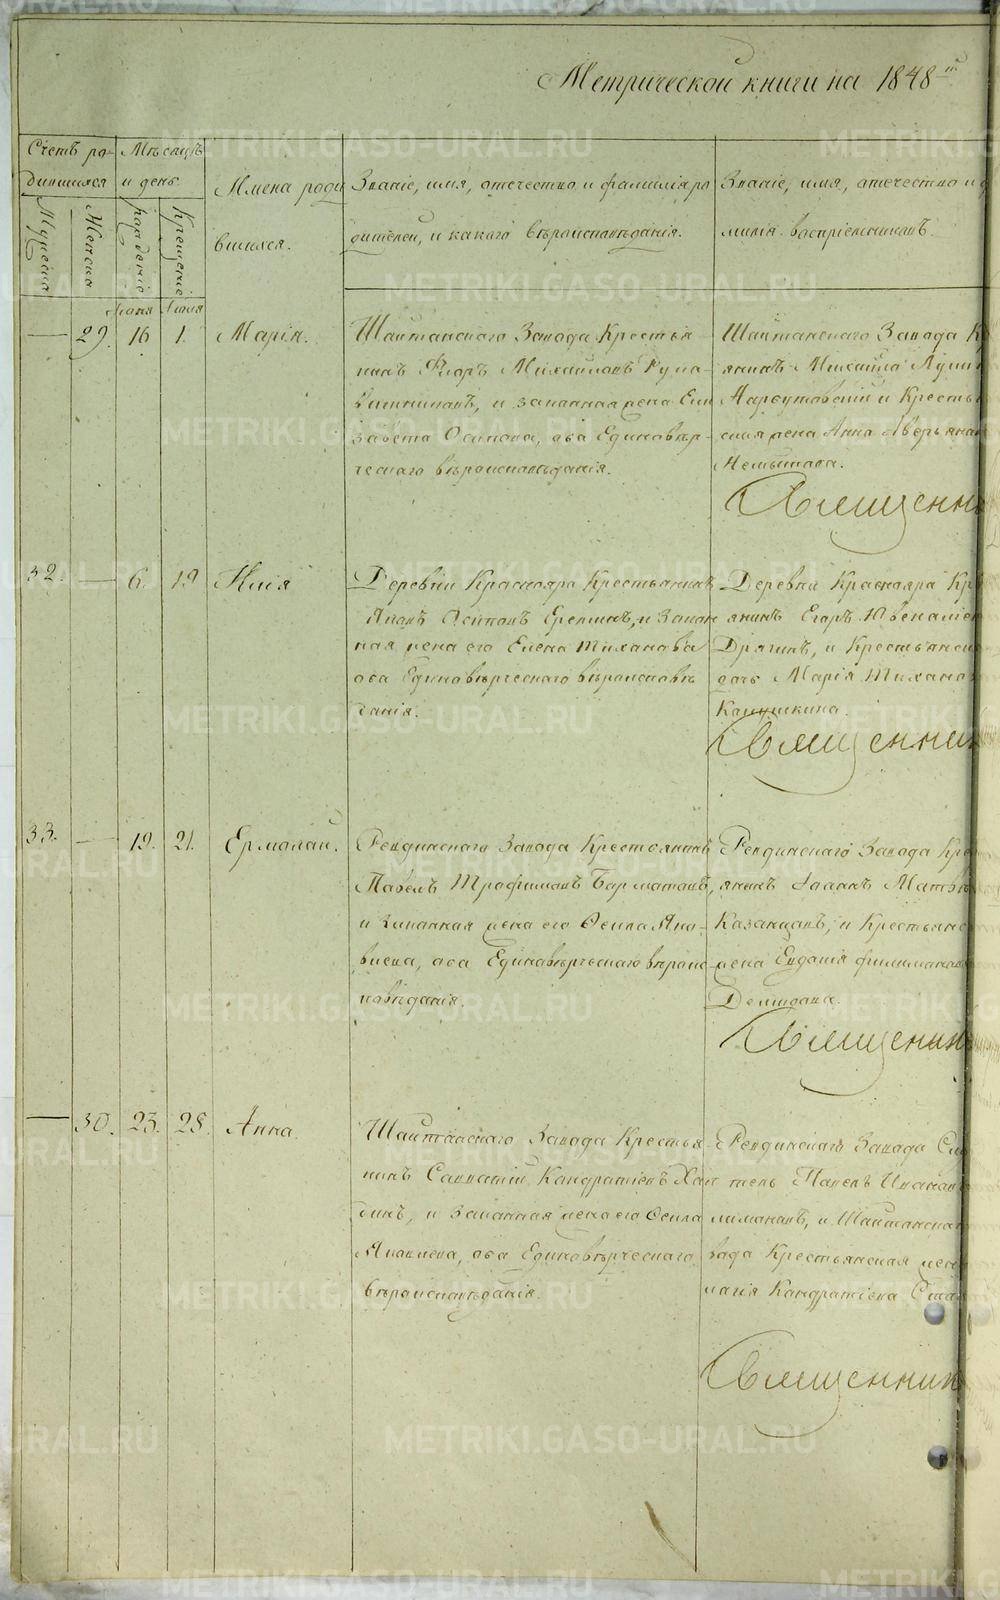 Метрической книги на 1848
Счетъ ро-
дившихся
Мѣсяцъ
и день
Мужеска
Женска
рожденіе
Крещеніе
Имена роди
вшихся.
Званіе, имя, отечество и фамилія ро
дителей, и какого вѣроисповѣданія.
Званіе, имя, отечество и
милія воспріемниковъ.
Іюня Іюля
29. 16 1. Марія.
Шайтанскаго Завода Крестья
нинъ Михайловъ
и законная жена Ели
завета Осипова, оба Единовѣр-
ческаго вѣроисповѣданія.
Шайтанскаго Завода К
янинъ Михаило
и Кресть
ская жена Анна Аверьянова
Священни
32. — 6. 19 Илія
Деревни Краснояра Крестьянинъ
Яковъ Осиповъ Ереминъ, и Закон
ная жена его Елена Тиханова
оба Единовѣрческаго вѣроисповѣ
данія.
Деревни Краснояра Кр
янинъ Егоръ Ювеналіе
Дрягинъ, и Крестьянск
дочь Марія Тихано
Канюшкина.
Священник
33. — 19. 21. Ермолай.
Ревдинскаго Завода Крестьянинъ
Павелъ Трофимовъ Бармотовъ,
и Законная жена его Фекла Яко-
влева, оба Единовѣрческаго вѣроис-
повѣданія.
Ревдинскаго Завода Кре
янинъ Іоаннъ Матвѣ
Казанцовъ, и Крестьянс
жена Евдокія Филимонова
Демидова.
Священник
— 30. 23. 28. Анна.
Шайтанскаго Завода Крестья
нинъ Савватій Кандратіевъ Хал
динъ, и Законная жена его Фекла
Яковлева, оба Единовѣрческаго
вѣроисповѣданія.
Ревдинскаго Завода
тель Павелъ Ивановъ
и Шайтанскаго
вода Крестьянская жен
Кандратіева
Священник
METRIKI.GASO-URAL.RU